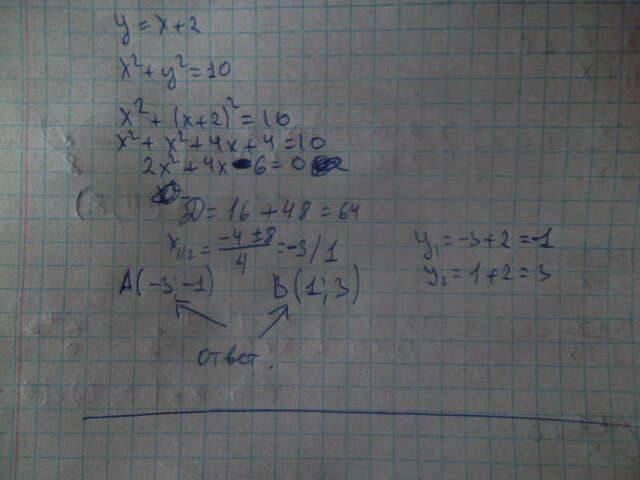 y = x+2
x²+y²=10
x²+(x+2)²=10
x²+x²+4x+4=10
2x²+4x-6=0
D=16+48=64
x₁/₂ = (-4±8)/4 = -3/1
y₁=-3+2=-1
y₂=1+2=3
A(-3;-1) B(1;3)
ответ.